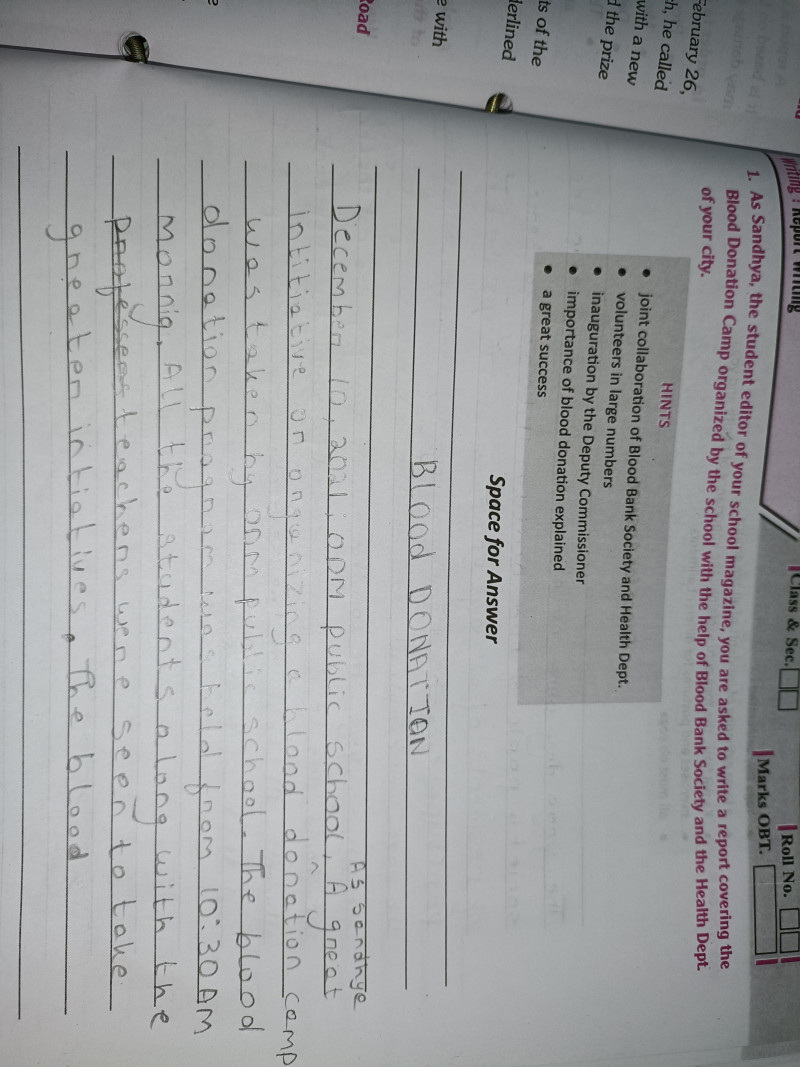 February 26,
h, he called
with a new
d the prize
ts of the
derlined
e with
Road
Writing : Report Writing
Class & Sec.
Roll No.
Marks OBT.
1. As Sandhya, the student editor of your school magazine, you are asked to write a report covering the
Blood Donation Camp organized by the school with the help of Blood Bank Society and the Health Dept.
of your city.
HINTS
• joint collaboration of Blood Bank Society and Health Dept.
• volunteers in large numbers
• inauguration by the Deputy Commissioner
• importance of blood donation explained
• a great success
Space for Answer
BLOOD DONATION
As sandhya
December 10, 2021; ODM public school, A great
intitiative on organizing a blood donation camp
was taken by ODM public school. The blood
donation program was held from 10:30 AM
monnig. All the students along with the
professor teachers were seen to take
greater intiatives. The blood